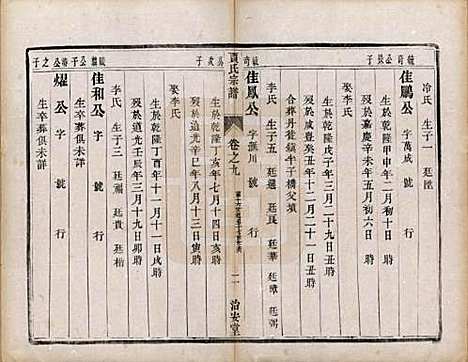 毓奇公長子
冷氏 生子一 廷陞
佳鵬公 字萬成 號 行
生於乾隆甲申年二月初十日 時
歿於嘉慶辛未年五月初六日 時
娶李氏
生於乾隆戊子年三月二十九日丑時
歿於咸豐癸丑年十二月二十一日丑時
合葬丹徒鎮牛子橋父墳
李氏 生子五 廷選 廷長 廷華 廷璋 廷弼
佳鳳公 字滙川 號 行
氏宗譜
卷之九
二
治安堂
次子
生於乾隆丁亥年七月十四日亥時
歿於道光辛巳年八月十三日寅時
娶李氏
生於乾隆丁酉年十一月十一日戌時
歿於道光壬辰年三月十三日卯時
李氏 生子三 廷福 廷貴 廷楷
公子
佳和公 字 號 行
生卒葬俱未詳
公之子
燿公 字 號 行
生卒葬俱未詳